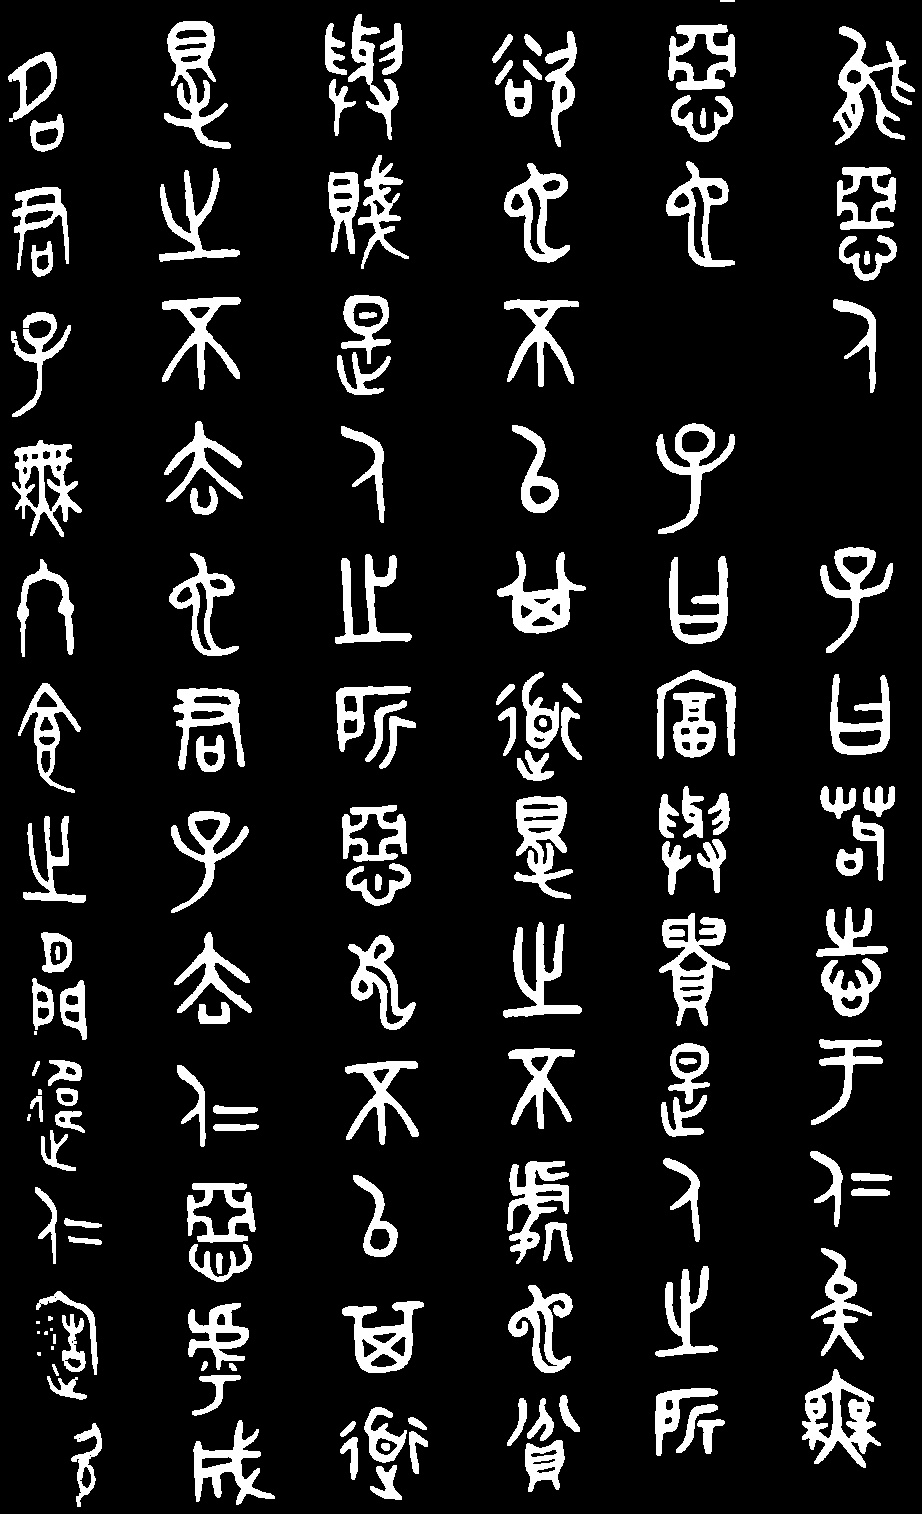 能惡人 子曰苟志于仁矣無
惡也 子曰富與貴是人之所
欲也不以其道得之不處也貧
與賤是人之所惡也不以其道
得之不去也君子去仁惡乎成
名君子無終食之間違仁造次